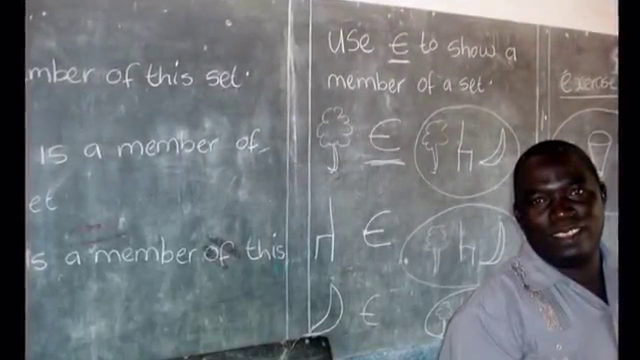 mber of this set.
is a member of
et
s a member of this
Use ∈ to show a
member of a set.
∈
∈
∈
exercise